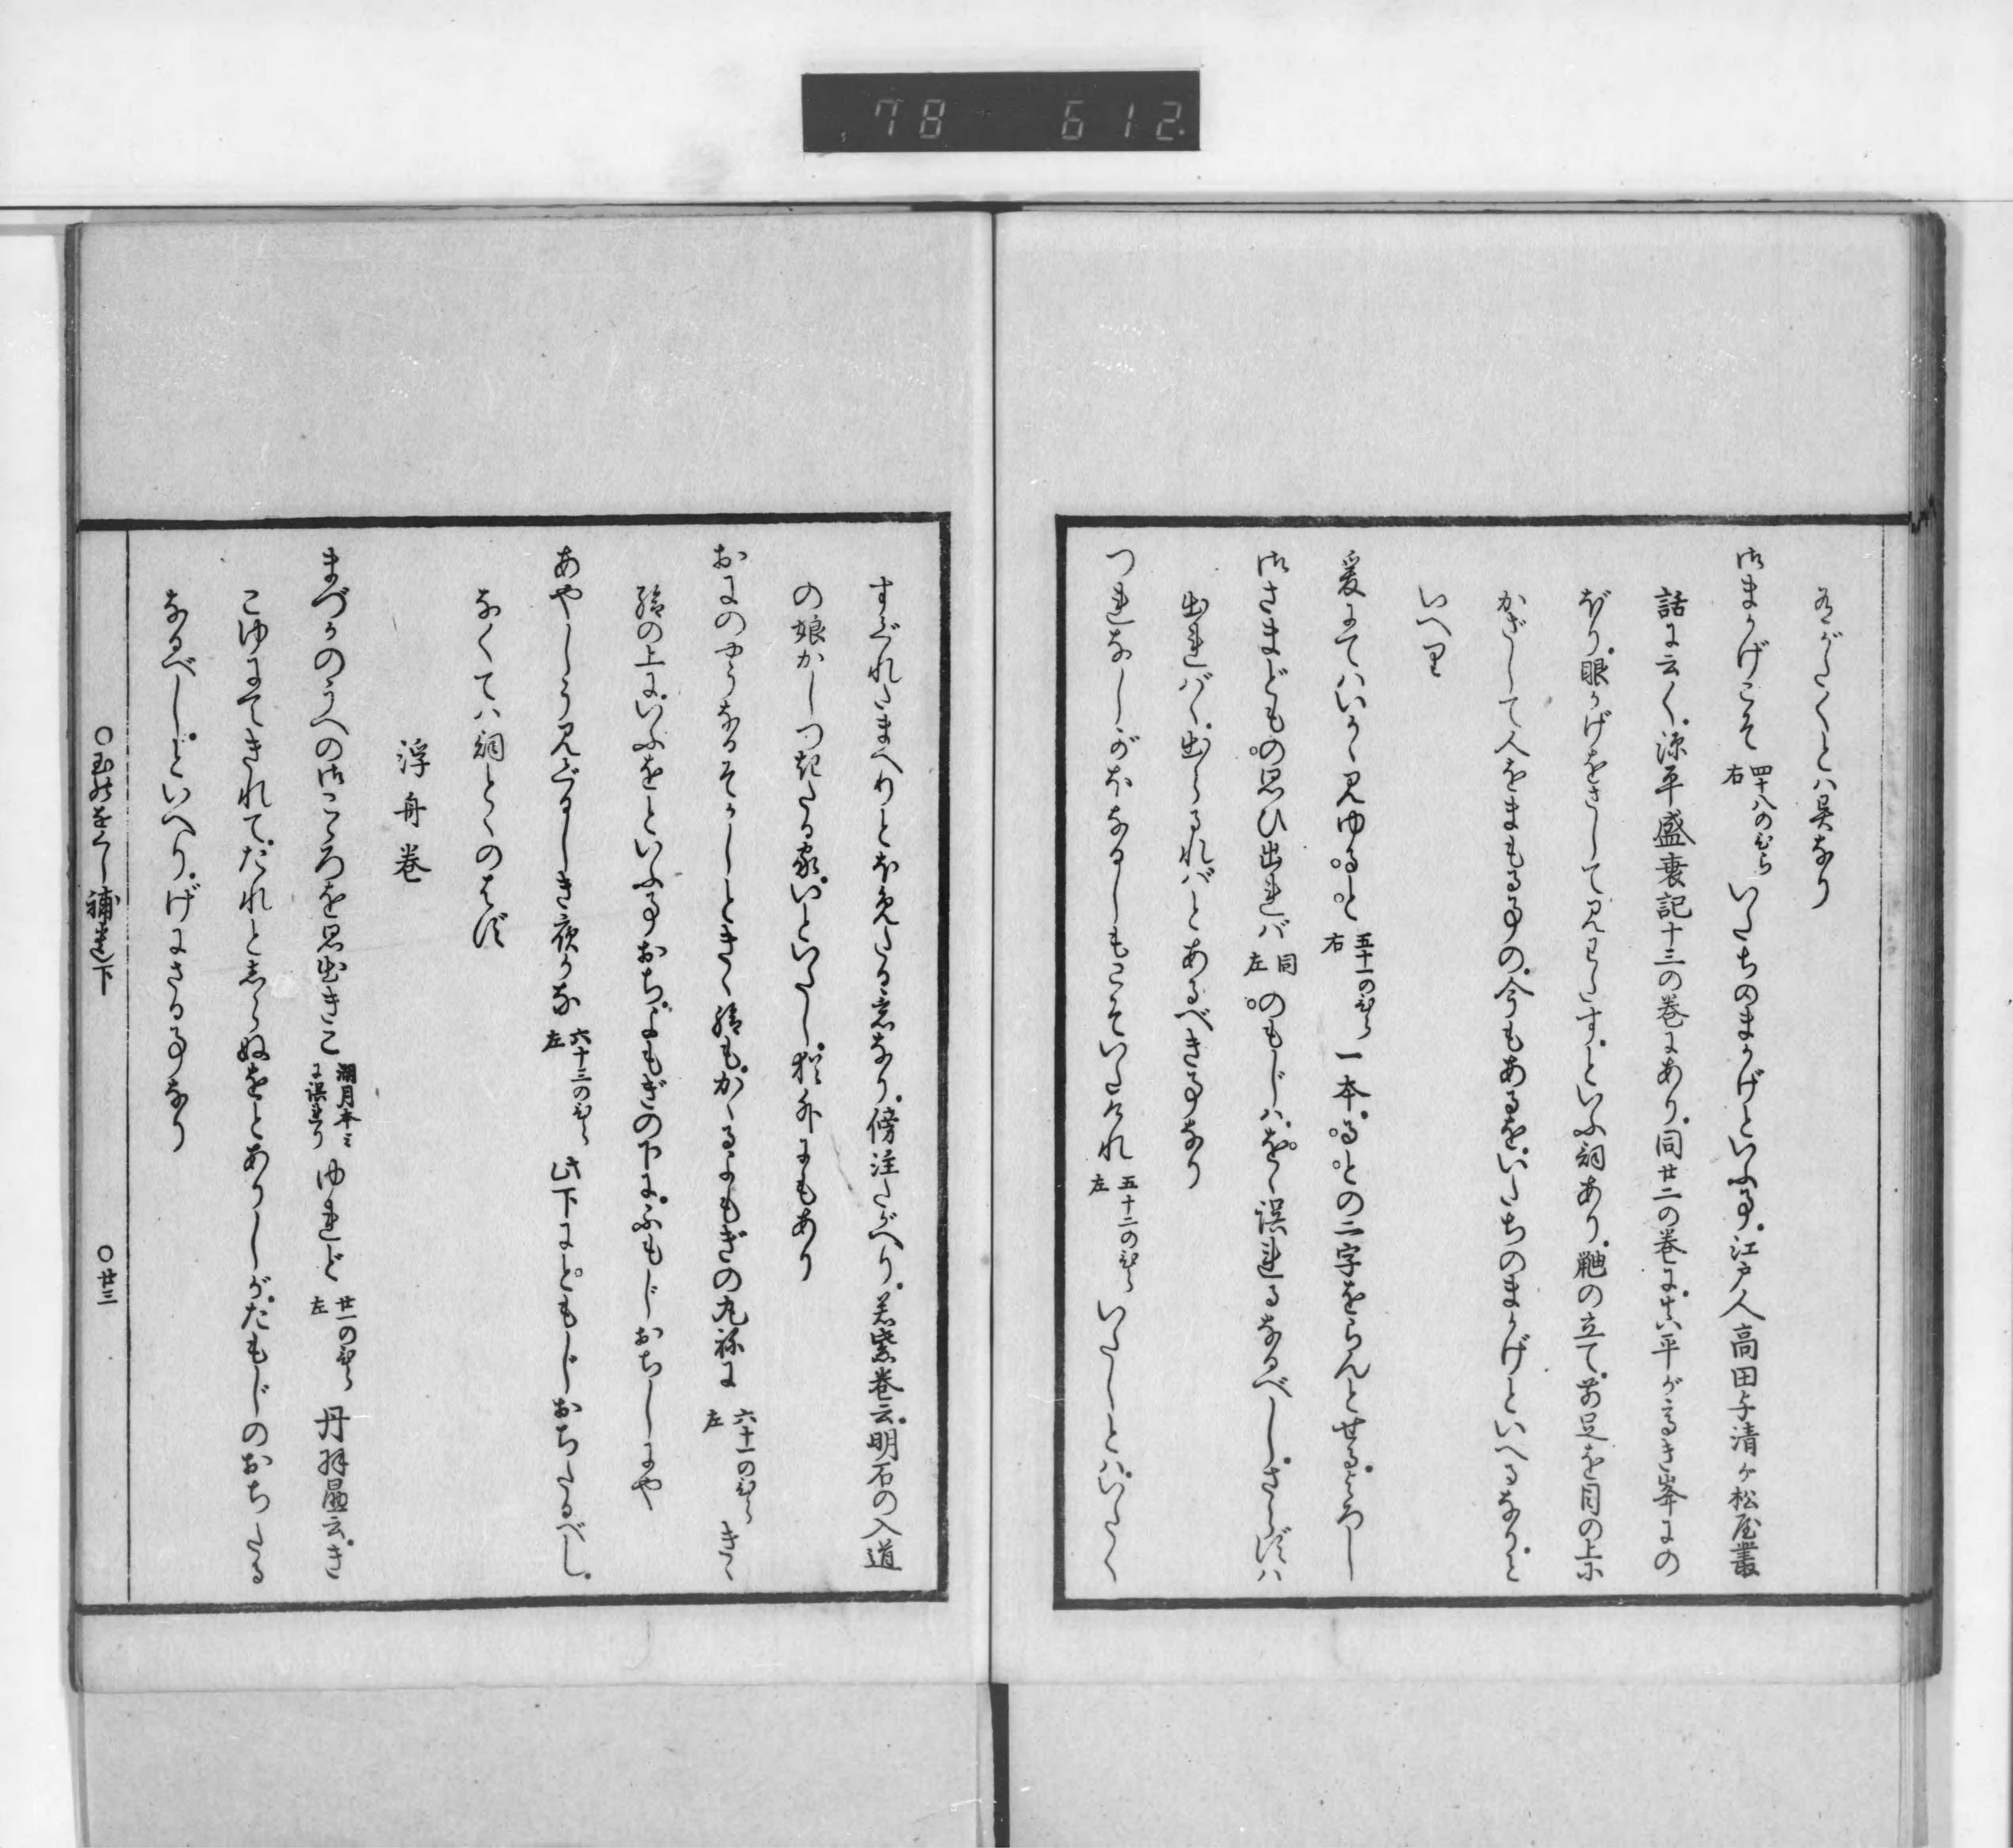 とハ異なり
御まかげこそ四十八のひら右いたちのまかげといふ事。江戸人高田与清が松屋叢
話に云く。源平盛衰記十三の巻にあり。同廿二の巻に。真平が高き峯にの
ぼり。眼かげをさして見わたす。といふ詞あり。鼬の立て。前足を目の上に
かざして人をまもる事の。今もあるを。いたちのまかげといへるなり。と
いへり
爰にてハいかゞ見ゆると五十一のひら右一本。るとの二字をらんとせる。よろし
御さまどもの思ひ出れバ同左のもじハ。を誤れるなるべし。さらずハ
出れバゝ。出らるれバとあるべき事なり
つれなしがほなるしもこそいたけれ五十二のひら左いたしとハ。いたく
すぐれたまへりとほめたる意なり。傍注たがへり。若紫巻云。明石の入道
の娘かしつきたる家。いといたし。猶外にもあり
おにのやうなるそかしときゝ給も。かゝるよもぎの丸ねに六十一のひら左きゝ
給の上に。いふをといふ事おち。よもぎの下に。ふもじおちしにや
あやしう見ぐるしき夜かな六十三のひら左此下に。ともじおちたるべし。
なくてハ詞とゝのはず
浮舟巻
まづかのうへの御こゝろを思出きこ湖月本ミに誤れりゆれど廿一のひら左丹羽勗云。き
こゆにてきれて。たれとしらぬをとありしが。たもじのおちたる
なるべし。といへり。げにさる事なり
○玉のをぐし補遺下 ○廿三
78 612.